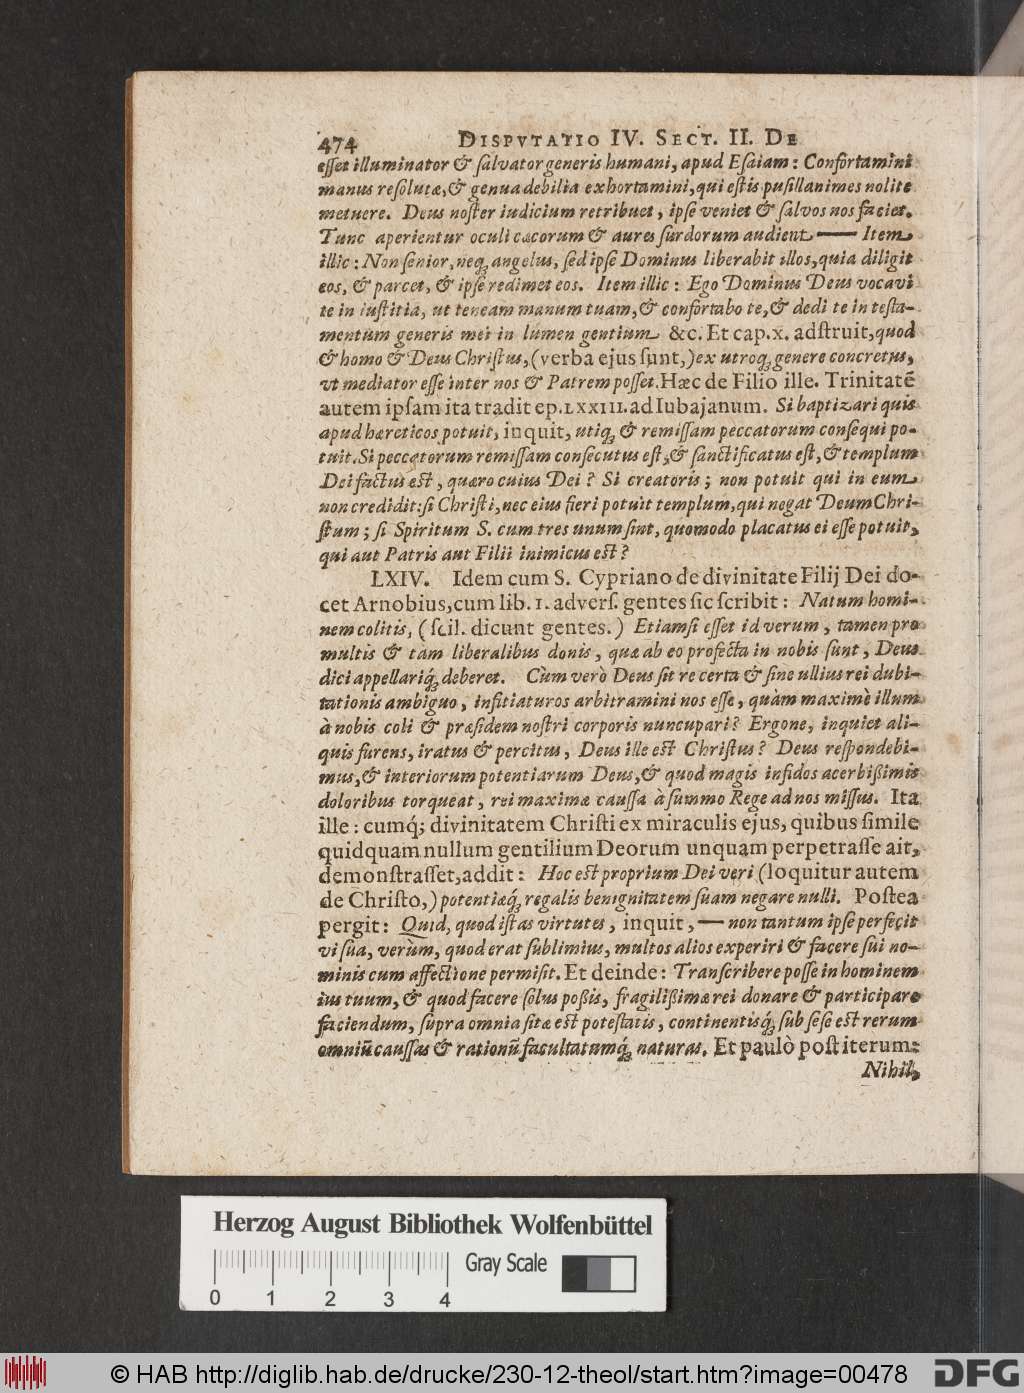 474 DISPVTATIO IV. SECT. II. DE
esset illuminator & salvator generis humani, apud Esaiam: Confortamini
manus resolutæ, & genua debilia exhortamini, qui estis pusillanimes nolite
metuere. Deus noster iudicium retribuet, ipse veniet & salvos nos faciet.
Tunc aperientur oculi cæcorum & aures surdorum audient — Item
illic: Non senior, neq; angelus, sed ipse Dominus liberabit illos, quia diligit
eos, & parcet, & ipse redimet eos. Item illic: Ego Dominus Deus vocavi
te in iustitia, ut teneam manum tuam, & confortabo te, & dedi te in testa-
mentum generis mei in lumen gentium &c. Et cap. x. adstruit, quod
& homo & Deus Christus, (verba ejus sunt,) ex utroq; genere concretus,
vt mediator esse inter nos & Patrem posset. Hæc de Filio ille. Trinitatē
autem ipsam ita tradit ep. LXXIII. ad Iubajanum. Si baptizari quis
apud hæreticos potuit, inquit, utiq; & remissam peccatorum consequi po-
tuit. Si peccatorum remissam consecutus est, & sanctificatus est, & templum
Dei factus est, quæro cuius Dei? Si creatoris; non potuit qui in eum
non credidit: si Christi, nec eius fieri potuit templum, qui negat Deum Chri-
stum; si Spiritum S. cum tres unum sint, quomodo placatus ei esse potuit,
qui aut Patris aut Filii inimicus est?
LXIV. Idem cum S. Cypriano de divinitate Filij Dei do-
cet Arnobius, cum lib. 1. advers. gentes sic scribit: Natum homi-
nem colitis, (scil. dicunt gentes.) Etiamsi esset id verum, tamen pro
multis & tàm liberalibus donis, quæ ab eo profecta in nobis sunt, Deus
dici appellariq́; deberet. Cùm verò Deus sit re certa & sine ullius rei dubi-
tationis ambiguo, infitiaturos arbitramini nos esse, quàm maximè illum
à nobis coli & præsidem nostri corporis nuncupari? Ergone, inquiet ali-
quis furens, iratus & percitus, Deus ille est Christus? Deus respondebi-
mus, & interiorum potentiarum Deus, & quod magis infidos acerbißimis
doloribus torqueat, rei maximæ caussa à summo Rege ad nos missus. Ita
ille: cumq́; divinitatem Christi ex miraculis ejus, quibus simile
quidquam nullum gentilium Deorum unquam perpetrasse ait,
demonstrasset, addit: Hoc est proprium Dei veri (loquitur autem
de Christo,) potentiæq́; regalis benignitatem suam negare nulli. Postea
pergit: Quid, quod istas virtutes, inquit, — non tantum ipse perfecit
vi sua, verùm, quod erat sublimius, multos alios experiri & facere sui no-
minis cum affectione permisit. Et deinde: Transcribere posse in hominem
ius tuum, & quod facere solus poßis, fragilißimæ rei donare & participare
faciendum, supra omnia sitæ est potestatis, continentisq́; sub sese est rerum
omniū caussas & rationū facultatumq́; naturas. Et paulò post iterum:
Nihil,
Herzog August Bibliothek Wolfenbüttel
Gray Scale
0 1 2 3 4
© HAB http://diglib.hab.de/drucke/230-12-theol/start.htm?image=00478
DFG